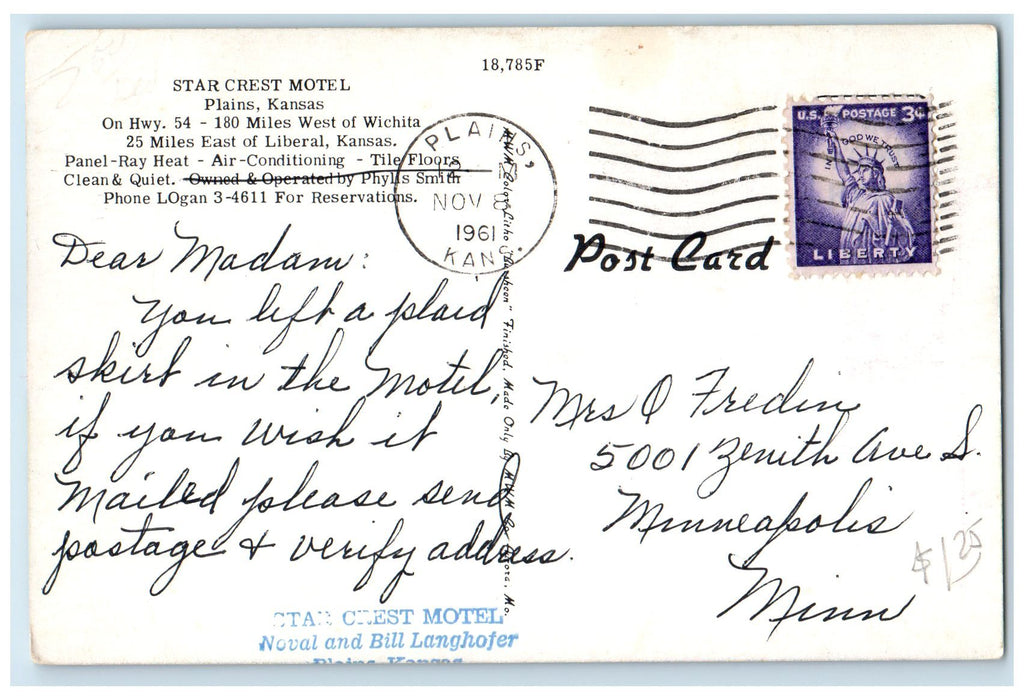 18,785F
STAR CREST MOTEL
Plains, Kansas
On Hwy. 54 - 180 Miles West of Wichita
25 Miles East of Liberal, Kansas.
Panel-Ray Heat - Air-Conditioning - Tile Floors
Clean & Quiet. Owned & Operated by Phylis Smith
Phone LOgan 3-4611 For Reservations.
PLAINS,
NOV 8
1961
KANS.
U.S. POSTAGE 3¢
IN GOD WE TRUST
LIBERTY
Post Card
Dear Madam:
You left a plaid
skirt in the Motel,
if you wish it
Mailed please send
postage & verify address.
Finished. Made Only by
Mo.
Mrs O Fredin
5001 Zenith Ave S.
Minneapolis
Minn
$1 25
STAR CREST MOTEL
Noval and Bill Langhofer
Plains, Kansas